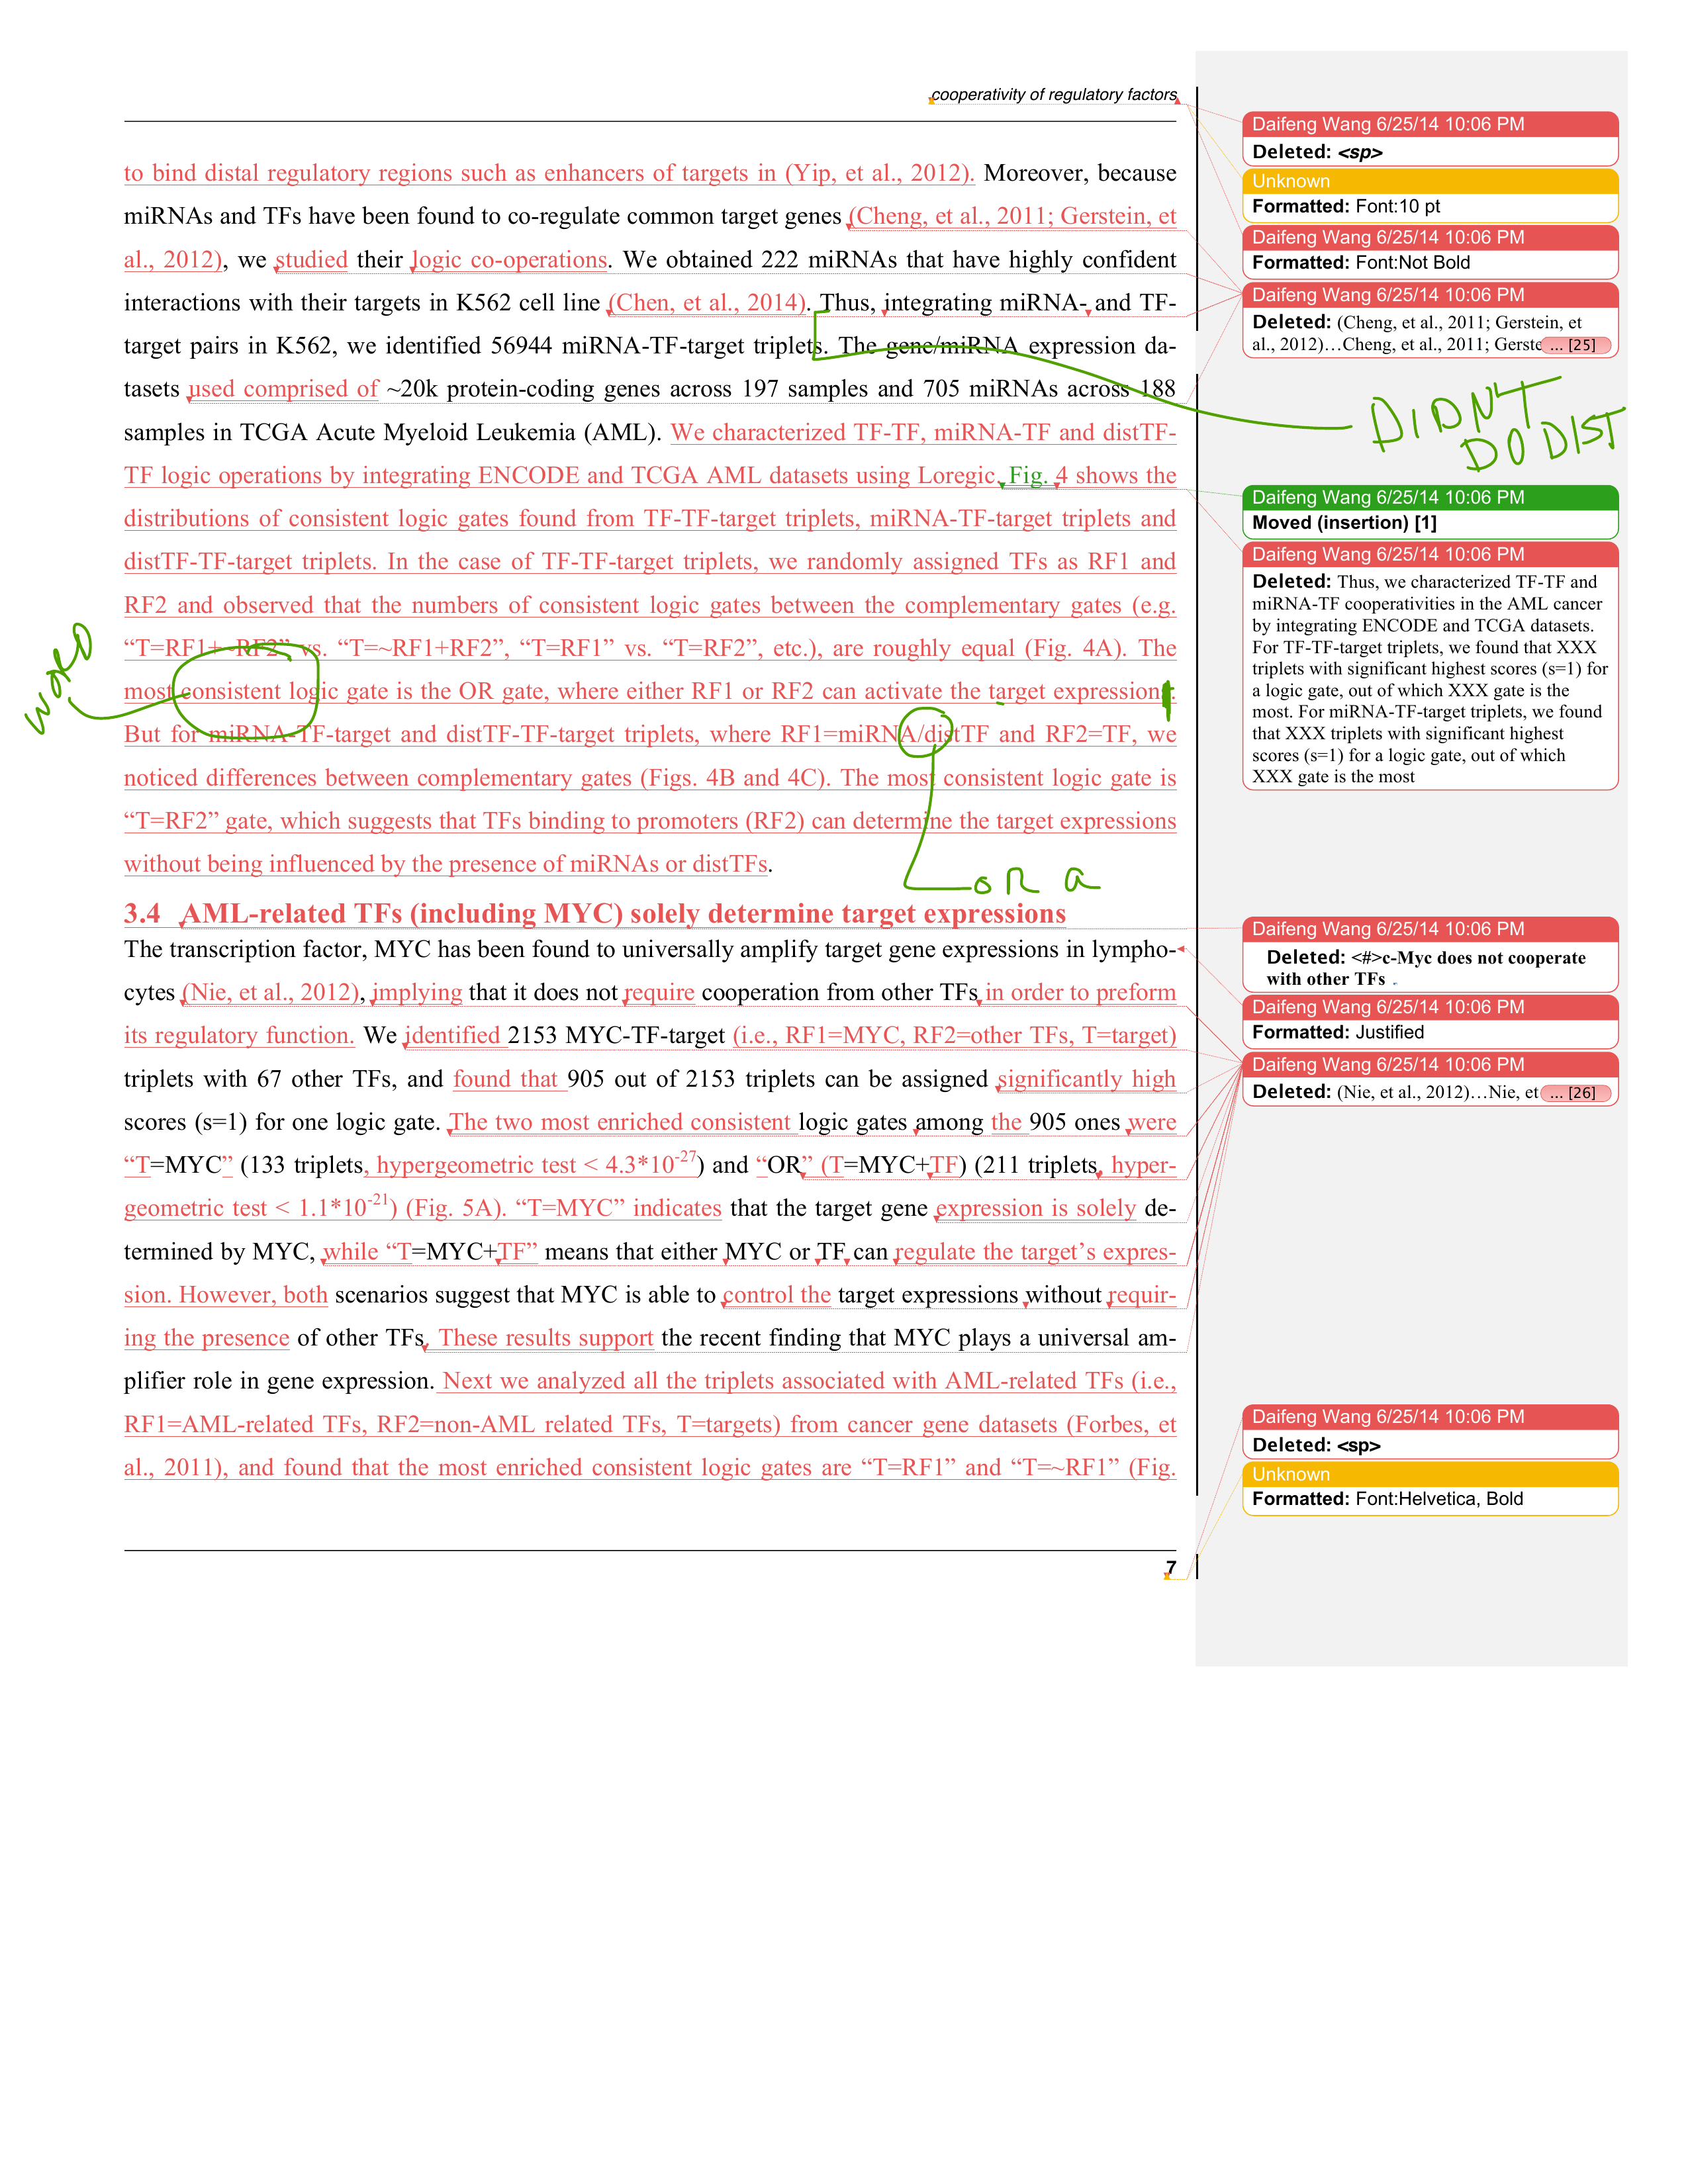 cooperativity of regulatory factors
to bind distal regulatory regions such as enhancers of targets in (Yip, et al., 2012). Moreover, because
miRNAs and TFs have been found to co-regulate common target genes (Cheng, et al., 2011; Gerstein, et
al., 2012), we studied their logic co-operations. We obtained 222 miRNAs that have highly confident
interactions with their targets in K562 cell line (Chen, et al., 2014). Thus, integrating miRNA- and TF-
target pairs in K562, we identified 56944 miRNA-TF-target triplets. The gene/miRNA expression da-
tasets used comprised of ~20k protein-coding genes across 197 samples and 705 miRNAs across 188
samples in TCGA Acute Myeloid Leukemia (AML). We characterized TF-TF, miRNA-TF and distTF-
TF logic operations by integrating ENCODE and TCGA AML datasets using Loregic. Fig. 4 shows the
distributions of consistent logic gates found from TF-TF-target triplets, miRNA-TF-target triplets and
distTF-TF-target triplets. In the case of TF-TF-target triplets, we randomly assigned TFs as RF1 and
RF2 and observed that the numbers of consistent logic gates between the complementary gates (e.g.
“T=RF1+~RF2” vs. “T=~RF1+RF2”, “T=RF1” vs. “T=RF2”, etc.), are roughly equal (Fig. 4A). The
most consistent logic gate is the OR gate, where either RF1 or RF2 can activate the target expressions.
But for miRNA-TF-target and distTF-TF-target triplets, where RF1=miRNA/distTF and RF2=TF, we
noticed differences between complementary gates (Figs. 4B and 4C). The most consistent logic gate is
“T=RF2” gate, which suggests that TFs binding to promoters (RF2) can determine the target expressions
without being influenced by the presence of miRNAs or distTFs.
WORD
OR a
3.4 AML-related TFs (including MYC) solely determine target expressions
The transcription factor, MYC has been found to universally amplify target gene expressions in lympho-
cytes (Nie, et al., 2012), implying that it does not require cooperation from other TFs in order to preform
its regulatory function. We identified 2153 MYC-TF-target (i.e., RF1=MYC, RF2=other TFs, T=target)
triplets with 67 other TFs, and found that 905 out of 2153 triplets can be assigned significantly high
scores (s=1) for one logic gate. The two most enriched consistent logic gates among the 905 ones were
“T=MYC” (133 triplets, hypergeometric test < 4.3*10-27) and “OR” (T=MYC+TF) (211 triplets, hyper-
geometric test < 1.1*10-21) (Fig. 5A). “T=MYC” indicates that the target gene expression is solely de-
termined by MYC, while “T=MYC+TF” means that either MYC or TF can regulate the target’s expres-
sion. However, both scenarios suggest that MYC is able to control the target expressions without requir-
ing the presence of other TFs. These results support the recent finding that MYC plays a universal am-
plifier role in gene expression. Next we analyzed all the triplets associated with AML-related TFs (i.e.,
RF1=AML-related TFs, RF2=non-AML related TFs, T=targets) from cancer gene datasets (Forbes, et
al., 2011), and found that the most enriched consistent logic gates are “T=RF1” and “T=~RF1” (Fig.
7
Daifeng Wang 6/25/14 10:06 PM
Deleted: <sp>
Unknown
Formatted: Font:10 pt
Daifeng Wang 6/25/14 10:06 PM
Formatted: Font:Not Bold
Daifeng Wang 6/25/14 10:06 PM
Deleted: (Cheng, et al., 2011; Gerstein, et
al., 2012)…Cheng, et al., 2011; Gerste ... [25]
DIDN'T
DO DIST
Daifeng Wang 6/25/14 10:06 PM
Moved (insertion) [1]
Daifeng Wang 6/25/14 10:06 PM
Deleted: Thus, we characterized TF-TF and
miRNA-TF cooperativities in the AML cancer
by integrating ENCODE and TCGA datasets.
For TF-TF-target triplets, we found that XXX
triplets with significant highest scores (s=1) for
a logic gate, out of which XXX gate is the
most. For miRNA-TF-target triplets, we found
that XXX triplets with significant highest
scores (s=1) for a logic gate, out of which
XXX gate is the most
Daifeng Wang 6/25/14 10:06 PM
Deleted: <#>c-Myc does not cooperate
with other TFs .
Daifeng Wang 6/25/14 10:06 PM
Formatted: Justified
Daifeng Wang 6/25/14 10:06 PM
Deleted: (Nie, et al., 2012)…Nie, et ... [26]
Daifeng Wang 6/25/14 10:06 PM
Deleted: <sp>
Unknown
Formatted: Font:Helvetica, Bold